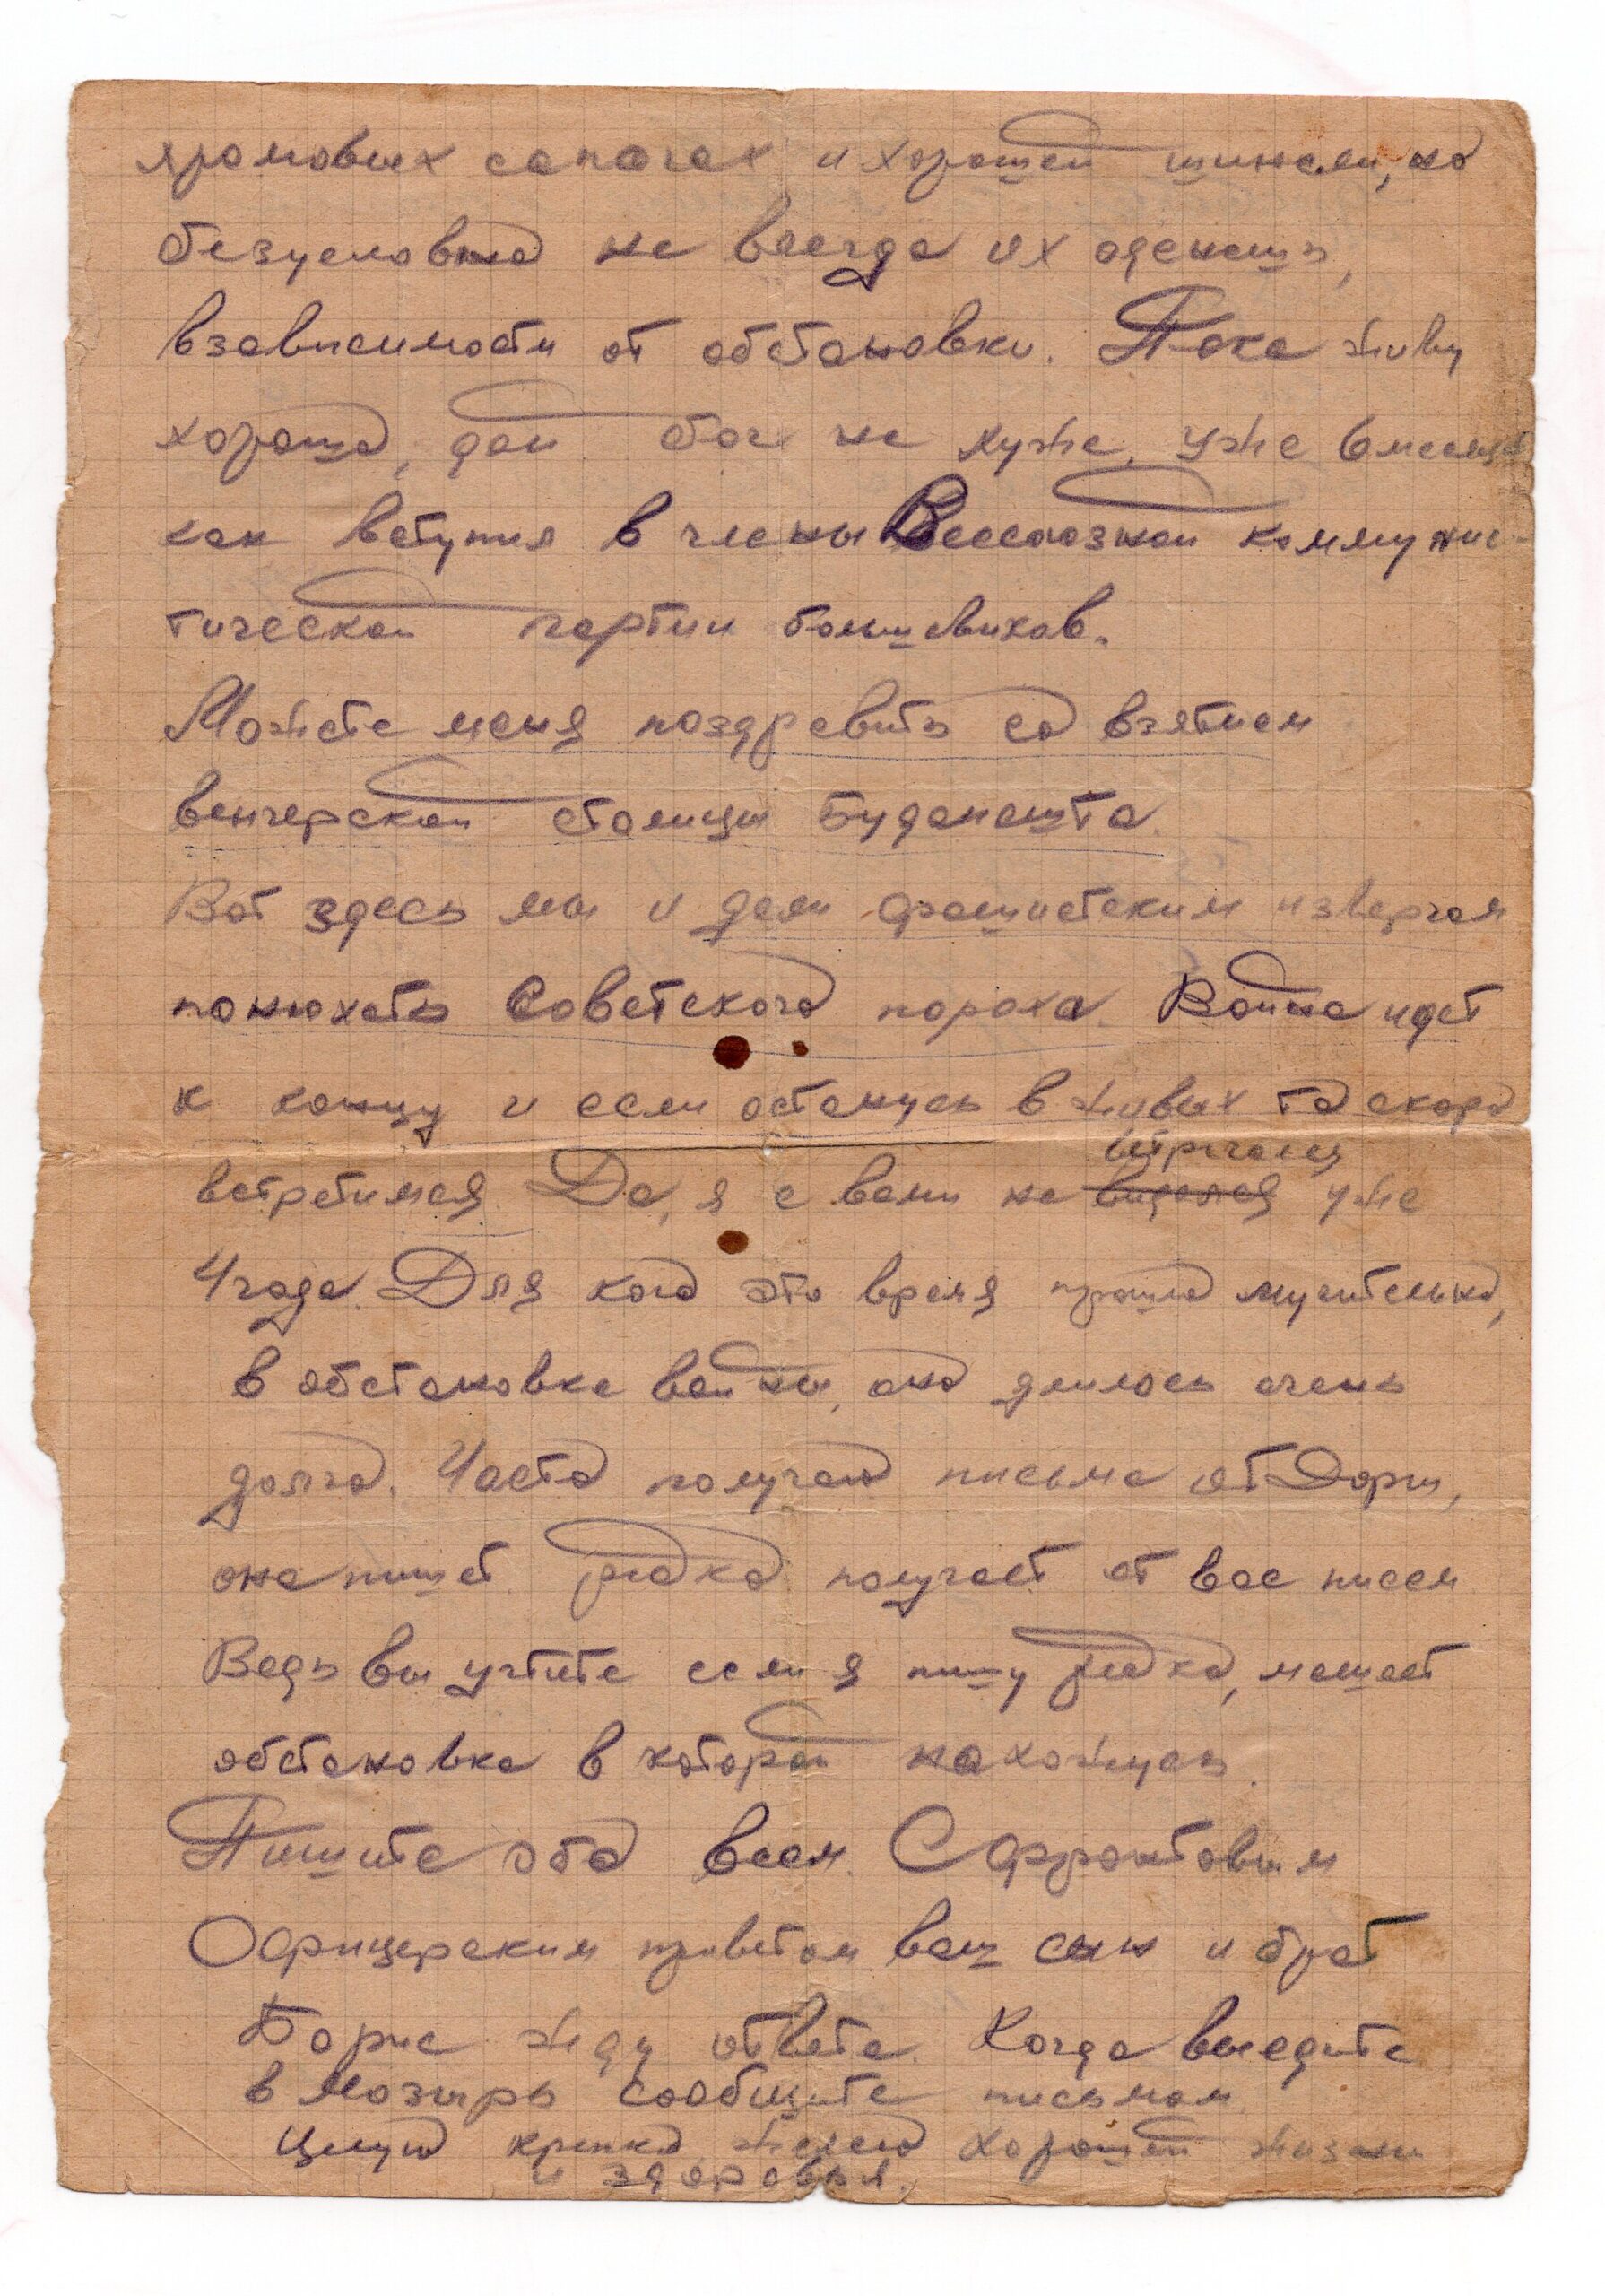 хромовых сапогах и хорошей шинели, но
безусловно не всегда их оденешь,
взависимости от обстановки. Пока живу
хорошо, дай бог не хуже. Уже 6 месяцев
как вступил в члены Всесоюзной коммунис-
тической партии большевиков.
Можете меня поздравить со взятием
венгерской столицы Будапешта.
Вот здесь мы и дали фашистским извергам
понюхать Советского пороха. Война идет
к концу и если останусь в живых то скоро
встретимся. Да, я с вами не видался встречался уже
4 года. Для кого это время прошло мучительно,
в обстановке войны, оно длилось очень
долго. Часто получаю письма от Доры,
она пишет редко получает от вас писем
Ведь вы учтите если я пишу редко, мешает
обстановка в которой нахожусь.
Пишите обо всем. С фронтовым
Офицерским приветом ваш сын и брат
Борис жду ответа. Когда выедите
в Мозырь сообщите письмом
Целую крепко желаю хорошей жизни
и здоровья.